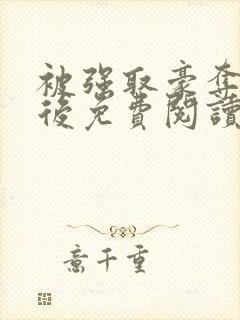 被強取豪奪
後免費閱讀
意千重